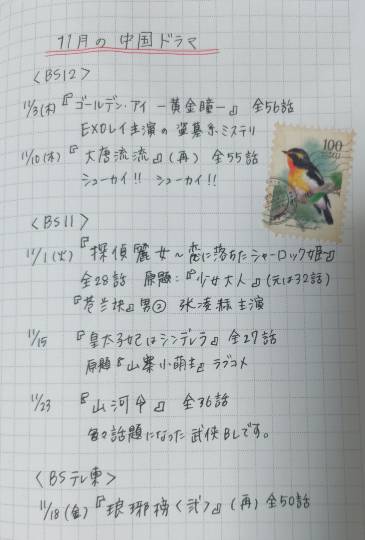 11月の中国ドラマ
<BS12>
11/3(木)『ゴールデン・アイ ー黄金瞳ー』 全56話
EXOレイ主演の盗墓系ミステリ
11/10(木)『大唐流流』(再) 全55話
シューカイ!! シューカイ!!
100
<BS11>
11/1(火)『探偵麗女〜恋に落ちたシャーロック姫〜』
全28話 原題:『少女大人』(元は32話)
『苍兰抉』男② 张凌赫主演
11/15 『皇太子妃はシンデレラ』 全27話
原題『山寨小萌主』ラブコメ
11/23 『山河令』 全36話
色々話題になった武侠BLです。
<BSテレ東>
11/18(金)『琅琊榜<弐>』(再) 全50話